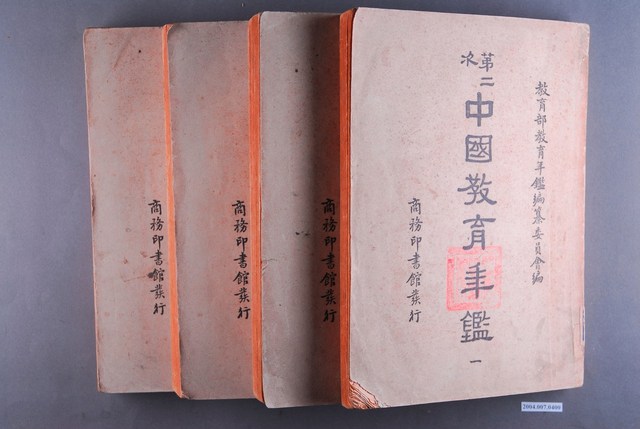 教育部教育年鑑編纂委員會編
第二次
中國教育年鑑
一
商務印書館發行
商務印書館發行
商務印書館發行
商務印書館發行
2004.007.0400